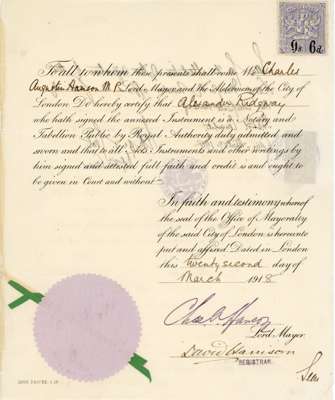 9s 6d
To all to whom these presents shall come We Charles
Augustin Hanson M.P. Lord Mayor and the Aldermen of the City of
London Do hereby certify that Alexander Ridgway
who hath signed the annexed Instrument is a Notary and
Tabellion Public by Royal Authority duly admitted and
sworn and that to all Acts Instruments and other writings by
him signed and attested full faith and credit is and ought to
be given in Court and without.
In faith and testimony whereof
the seal of the Office of Mayoralty
of the said City of London is hereunto
put and affixed. Dated in London
this twenty second day of
March 1918
Chas. A. Hanson
Lord Mayor.
David Harrison
REGISTRAR.